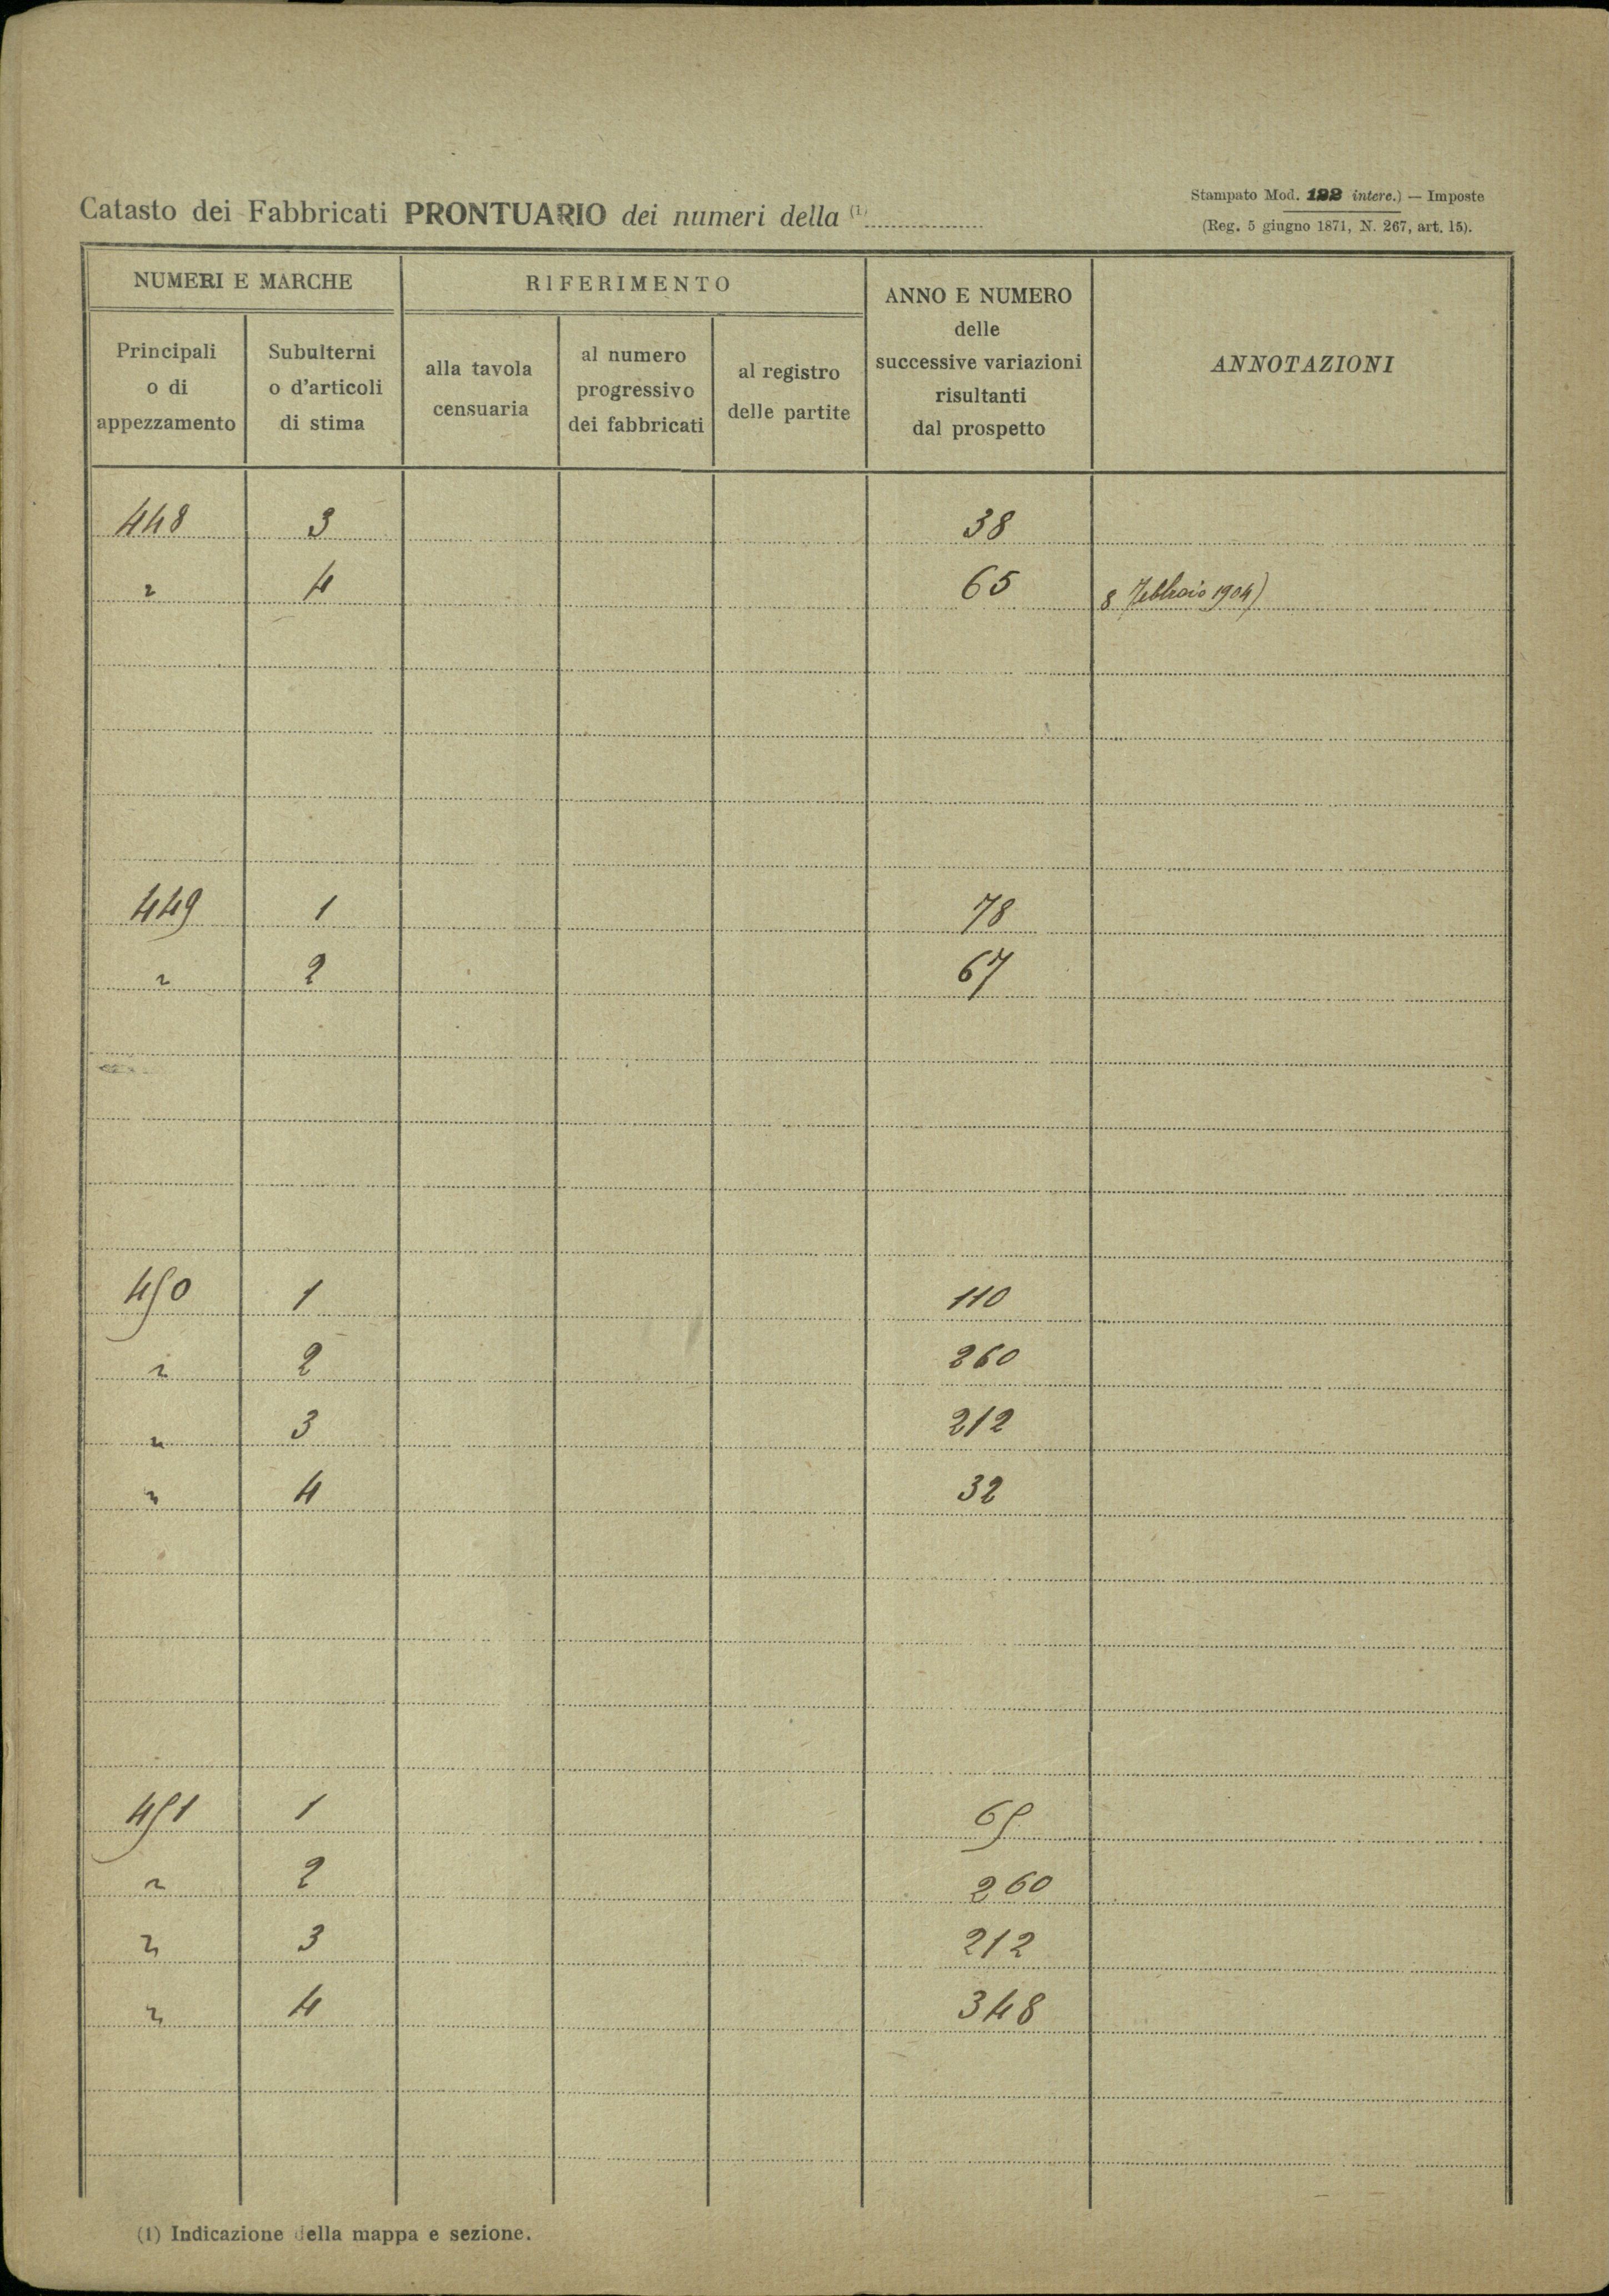 Catasto dei Fabbricati PRONTUARIO dei numeri della (1)
Stampato Mod. 122 interc.) — Imposte
(Reg. 5 giugno 1871, N. 267, art. 15).
NUMERI E MARCHE
RIFERIMENTO
ANNO E NUMERO
delle
successive variazioni
risultanti
dal prospetto
ANNOTAZIONI
Principali
o di
appezzamento
Subulterni
o d'articoli
di stima
alla tavola
censuaria
al numero
progressivo
dei fabbricati
al registro
delle partite
448 3 38
" 4 65 8 Febbraio 1904)
449 1 78
" 2 67
450 1 110
" 2 260
" 3 212
" 4 32
451 1 65
" 2 260
" 3 212
" 4 348
(1) Indicazione della mappa e sezione.